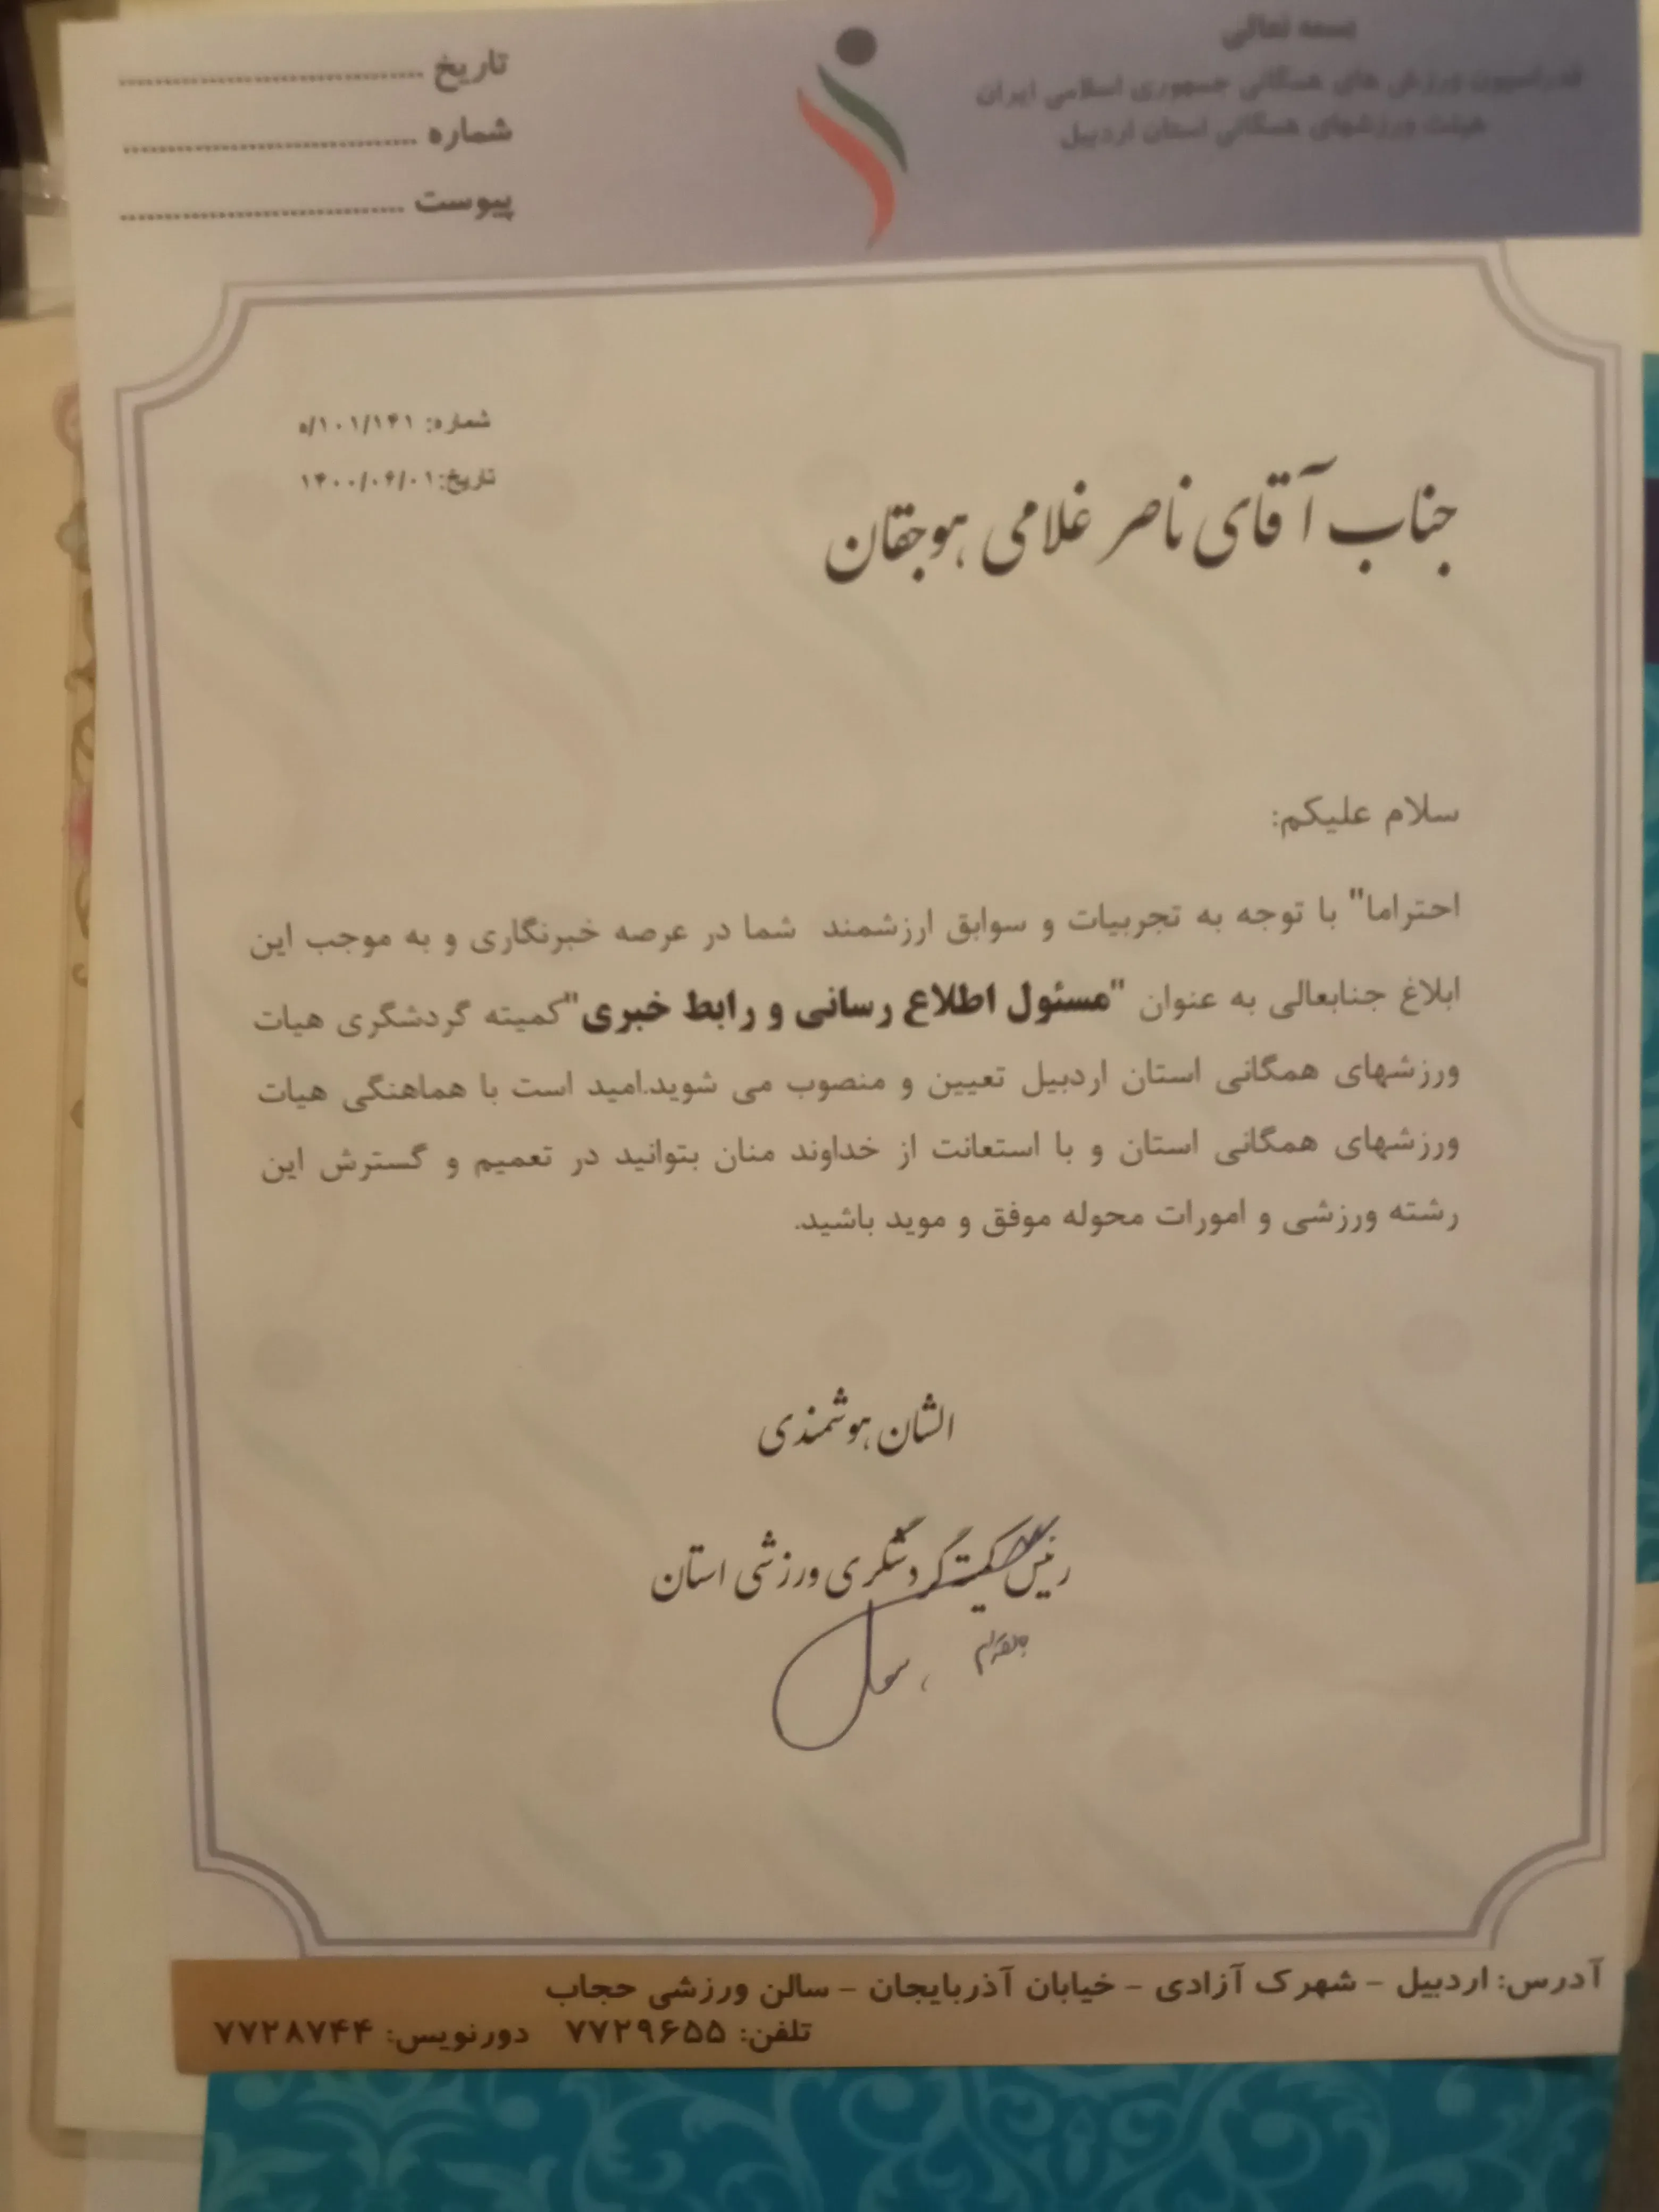 بسمه تعالی
فدراسیون ورزش های همگانی جمهوری اسلامی ایران
هیئت ورزشهای همگانی استان اردبیل
تاریخ ................................
شماره ................................
پیوست ................................
شماره: ۱۰۱/۱۴۱/ه
تاریخ: ۱۴۰۰/۰۶/۰۱
جناب آقای ناصر غلامی هوجقان
سلام علیکم:
احتراما" با توجه به تجربیات و سوابق ارزشمند شما در عرصه خبرنگاری و به موجب این
ابلاغ جنابعالی به عنوان "مسئول اطلاع رسانی و رابط خبری" کمیته گردشگری هیات
ورزشهای همگانی استان اردبیل تعیین و منصوب می شوید.امید است با هماهنگی هیات
ورزشهای همگانی استان و با استعانت از خداوند منان بتوانید در تعمیم و گسترش این
رشته ورزشی و امورات محوله موفق و موید باشید.
الشان هوشمندی
رئیس کمیته گردشگری ورزشی استان
آدرس: اردبیل – شهرک آزادی – خیابان آذربایجان – سالن ورزشی حجاب
تلفن: ۷۷۲۹۶۵۵ دورنویس: ۷۷۲۸۷۴۴